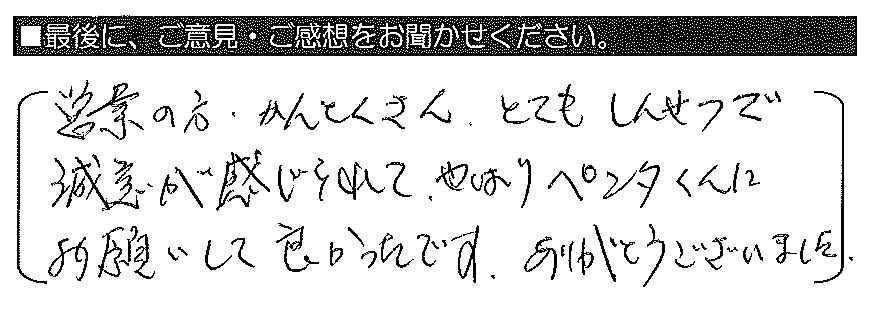 ■最後に、ご意見・ご感想をお聞かせください。
営業の方・かんとくさん、とてもしんせつで
誠意が感じられて、やはりペンタくんに
お願いして良かったです。ありがとうございました。